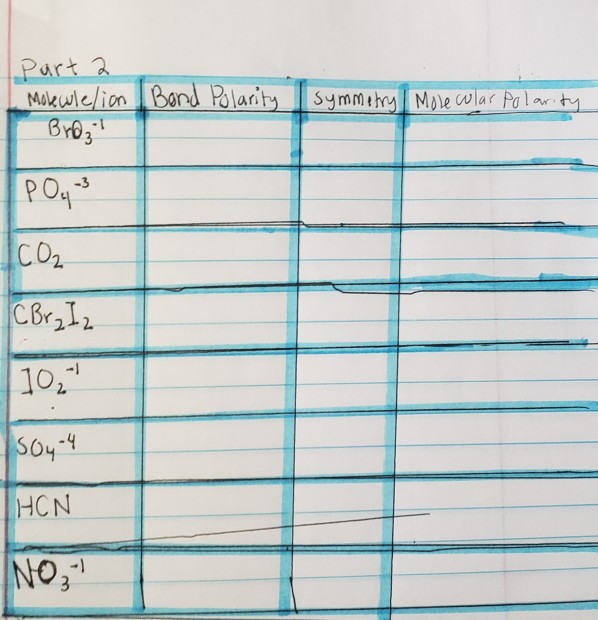 Part 2
Molecule/ion Bond Polarity Symmetry Molecular Polarity
BrO₃⁻¹
PO₄⁻³
CO₂
CBr₂I₂
IO₂⁻¹
SO₄⁻⁴
HCN
NO₃⁻¹